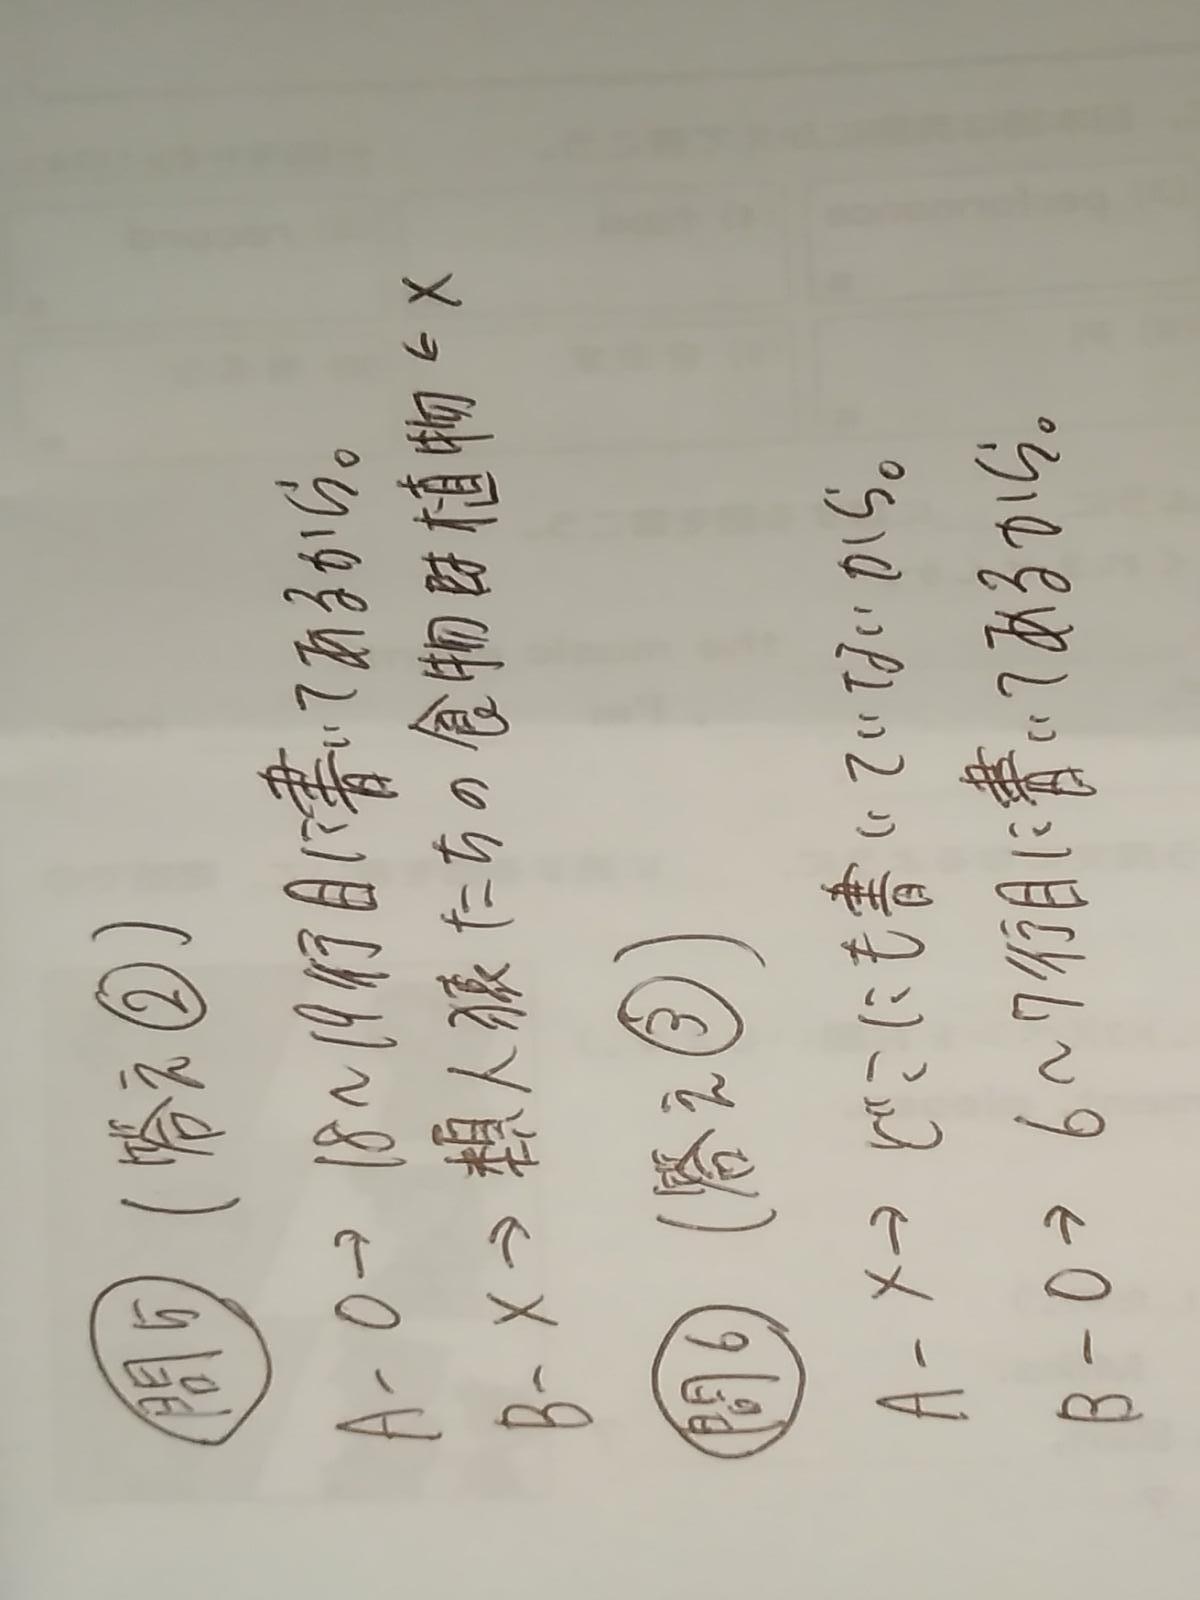 問5 (答え②)
A-○→ 18～19行目に書いてあるから。
B-×→ 類人猿たちの食物は植物←×
問6 (答え③)
A-×→ どこにも書いていないから。
B-○→ 6～7行目に書いてあるから。